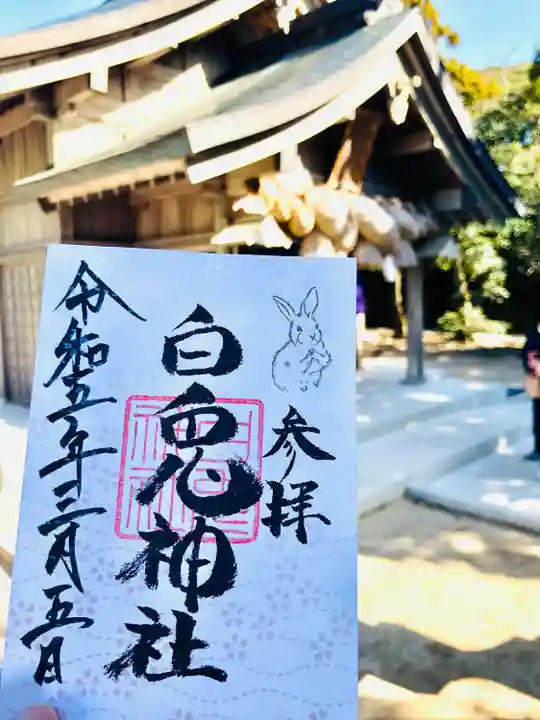 参拝
白兎神社
令和五年十二月五日